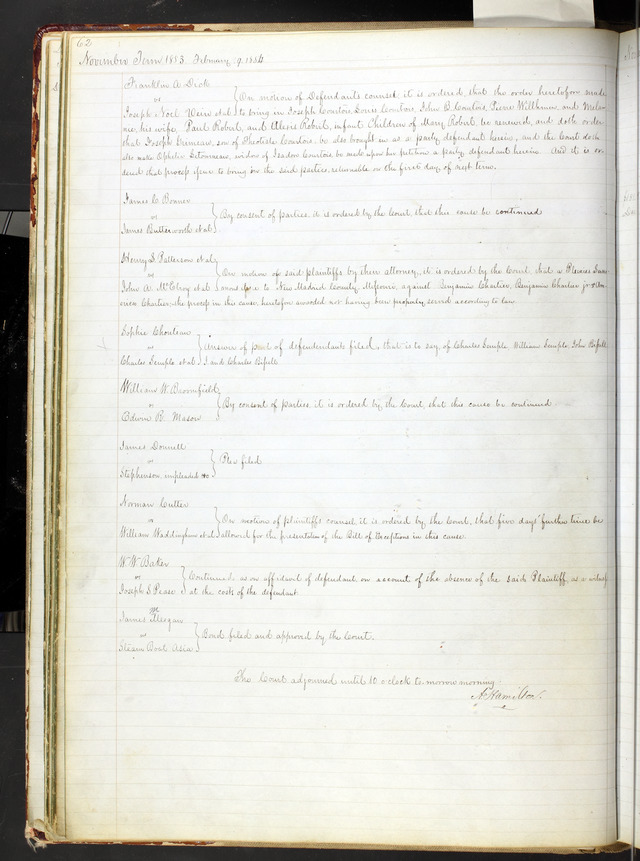 62
November Term 1853 February 9. 1854
Franklin A Dick
vs
Joseph Noel Vein et al
On motion of Defendants counsel, it is ordered, that the order heretofore made
to bring in Joseph Courtois, Louis Courtois, John B. Courtois, Pierre
and
his wife, Paul Robert, and Alexis Robert, infant Children of Mary Robert, be renewed, and doth order
that Joseph son of Courtois be also brought in as a party defendant herein, and the Court doth
also make Ophelia widow of Courtois, be made upon her petition a party defendant herein. And it is or-
dered that process issue to bring in the said parties, returnable on the first day of next term.
James C. Bonner
vs
James Butterworth et al
By consent of parties, it is ordered by the Court, that this cause be continued
Henry S Patterson et al
vs
John A. McElroy et al
On motion of said plaintiffs by their attorney, it is ordered by the Court, that a Plurias Sum-
mons issue to New Madrid County, Missouri, against Benjamin Charlier, Benjamin Charlier jr &
Charlier, the process in this cause heretofore awarded not having been properly served according to law
Sophie Chouteau
vs
Charles Semple et al
Answer of part of defendants filed, that is to say, of Charles Semple, William Semple, John
J. and Charles
William W. Broomfield
vs
Edwin R. Mason
By consent of parties it is ordered by the Court, that this cause be continued
James Donnell
vs
Stephenson, impleaded &c
Plea filed
Norman Cutter
vs
William Waddingham et al
On motion of plaintiffs counsel, it is ordered by the Court, that five days further time be
allowed for the presentation of the Bill of Exceptions in this cause.
W. W. Baker
vs
Joseph S Pease
Continued as on affidavit of defendant on account of the absence of the said Plaintiff, as a witness
at the costs of the defendant
James Megan
vs
Steam Boat Asia
Bond filed and approved by the Court.
The Court adjourned until 10 o'clock to-morrow morning.
A Hamilton.